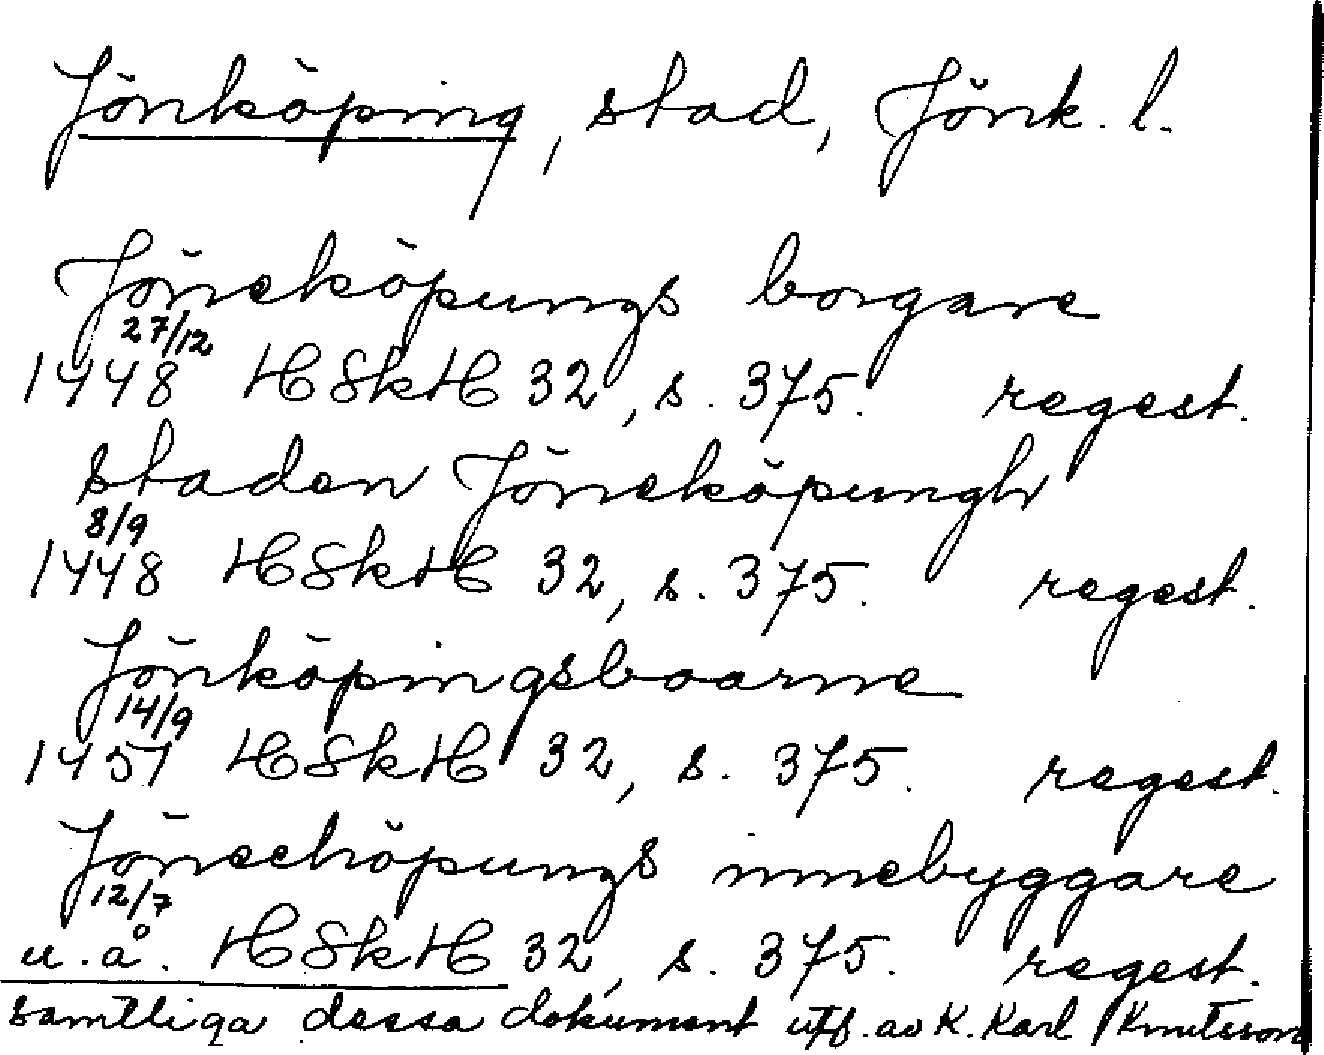 Jönköping, stad, Jönk. l.
Jöneköpungs borgare
27/12
1448 HSkH 32, s. 375. regest.
staden Jöneköpungh
8/9
1448 HSkH 32, s. 375. regest.
Jönköpingsboarne
14/9
1457 HSkH 32, s. 375. regest.
Jönecköpungs innebyggare
12/7
u.å. HSkH 32, s. 375. regest.
samtliga dessa dokument utf. av K. Karl Knutsson